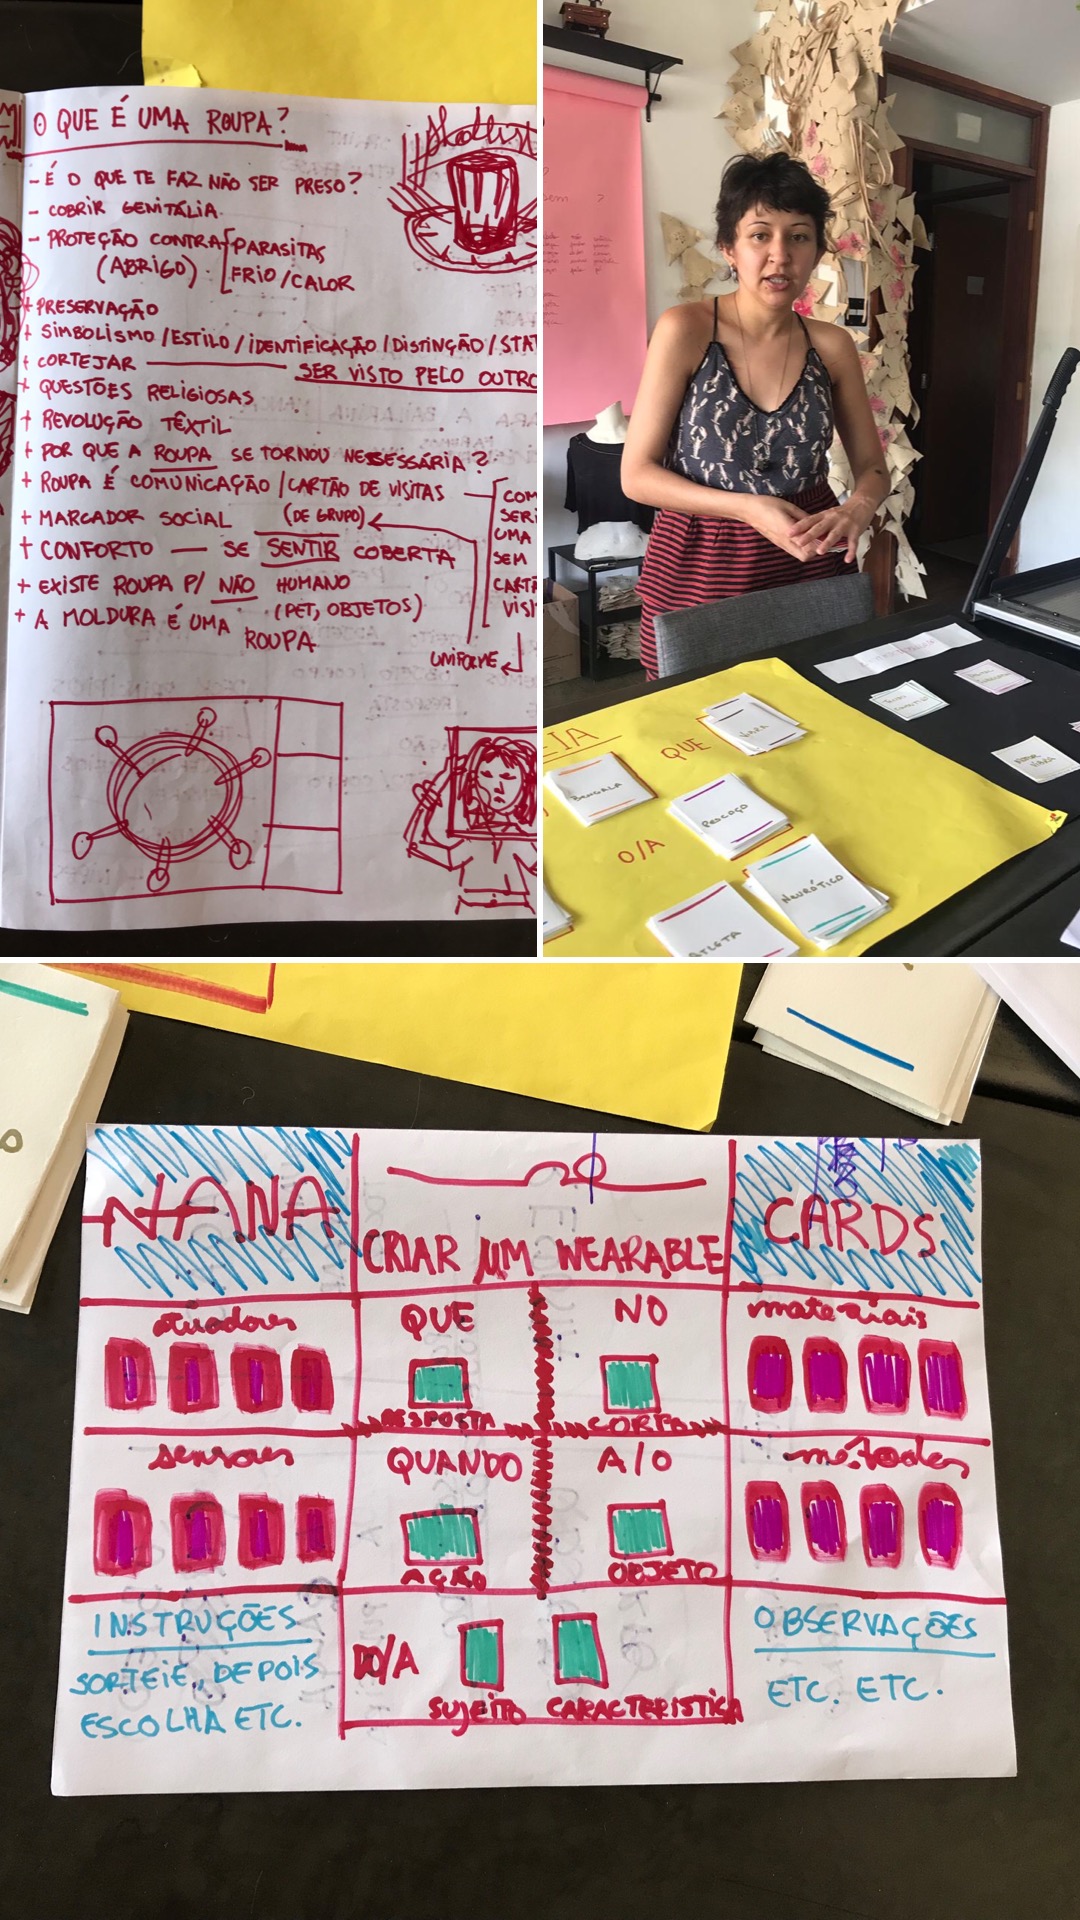 O QUE É UMA ROUPA?
- É O QUE TE FAZ NÃO SER PRESO?
- COBRIR GENITÁLIA
- PROTEÇÃO CONTRA PARASITAS
(ABRIGO) FRIO/CALOR
+ PRESERVAÇÃO
+ SIMBOLISMO/ESTILO/IDENTIFICAÇÃO/DISTINÇÃO/STAT
+ CORTEJAR
SER VISTO PELO OUTRO
+ QUESTÕES RELIGIOSAS
+ REVOLUÇÃO TÊXTIL
+ POR QUE A ROUPA SE TORNOU NESSESSÁRIA?
+ ROUPA É COMUNICAÇÃO/CARTÃO DE VISITAS
+ MARCADOR SOCIAL (DE GRUPO)
+ CONFORTO — SE SENTIR COBERTA
+ EXISTE ROUPA P/ NÃO HUMANO
(PET, OBJETOS)
+ A MOLDURA É UMA
ROUPA
COM
SER
UMA
SEM
CARTÃ
VISI
UNIFORME
EIA
QUE
BENGALA
PESCOÇO
O/A
NEURÓTICO
ATLETA
NANA
CRIAR UM WEARABLE
CARDS
atuadores
QUE
NO
materiais
RESPOSTA
CORPO
sensores
QUANDO
A/O
métodos
AÇÃO
OBJETO
INSTRUÇÕES
SORTEIE, DEPOIS
ESCOLHA ETC.
DO/A
SUJEITO
CARACTERISTICA
OBSERVAÇÕES
ETC. ETC.